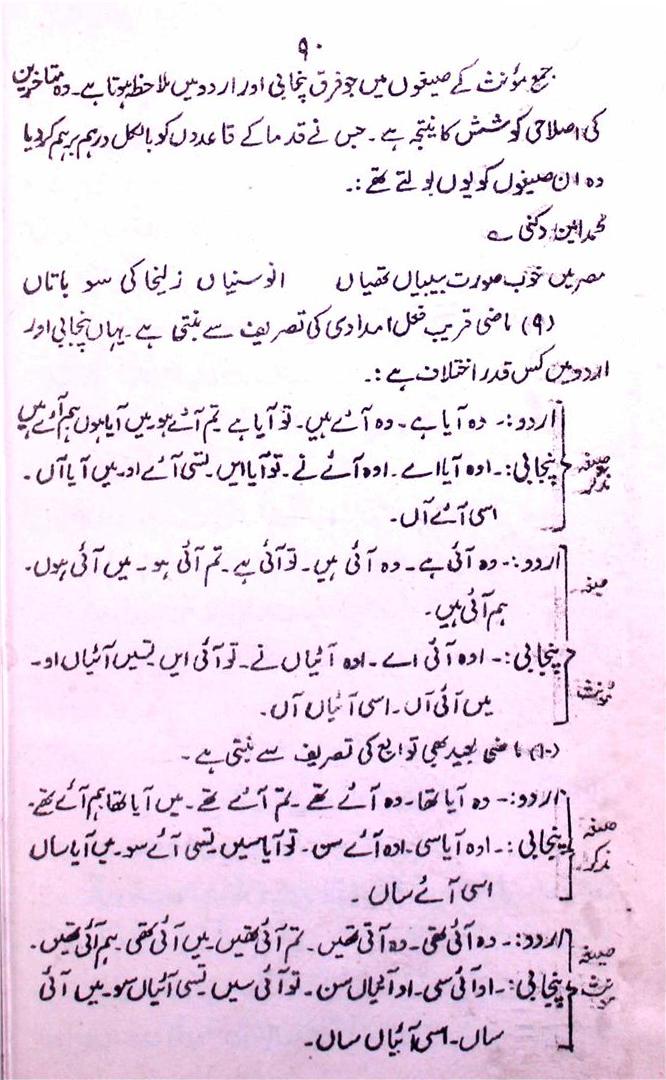 ۹۰
جمع مؤنث کے صیغوں میں جو فرق پنجابی اور اردو میں ملاحظہ ہوتا ہے۔ وہ متاخرین
کی اصلاحی کوشش کا نتیجہ ہے۔ جس نے قدما کے قاعدوں کو بالکل درہم برہم کر دیا
وہ ان صیغوں کو یوں بولتے تھے :۔
محمد امین دکنی ے
مصر میں خوب صورت بیبیاں تھیاں انو سنیاں زلیخا کی سو باتاں
(۹) ماضی قریب فعل امدادی کی تصریف سے بنتی ہے۔ یہاں پنجابی اور
اردو میں کس قدر اختلاف ہے :۔
اردو :۔ وہ آیا ہے۔ وہ آئے ہیں۔ تو آیا ہے تم آئے ہو۔ میں آیا ہوں ہم آئے ہیں
صیغہ مذکر
پنجابی :۔ اوہ آیا اے۔ اوہ آئے نے۔ تو آیا ایں۔ تسی آئے او۔ میں آیا آں۔
اسی آئے آں۔
اردو :۔ وہ آئی ہے۔ وہ آئی ہیں۔ تو آئی ہے۔ تم آئی ہو۔ میں آئی ہوں۔
صیغہ
ہم آئی ہیں۔
پنجابی :۔ اوہ آئی اے۔ اوہ آئیاں نے۔ تو آئی ایں۔ تسیں آئیاں او۔
مونث
میں آئی آں۔ اسی آئیاں آں۔
(۱۰) ماضی بعید بھی توابع کی تصریف سے بنتی ہے۔
اردو :۔ وہ آیا تھا۔ وہ آئے تھے۔ تم آئے تھے۔ میں آیا تھا ہم آئے تھے۔
صیغہ مذکر
پنجابی :۔ اوہ آیا سی۔ اوہ آئے سن۔ تو آیا سیں۔ تسی آئے سو۔ میں آیا ساں
اسی آئے ساں۔
اردو :۔ وہ آئی تھی۔ وہ آتی تھیں۔ تم آئی تھیں۔ میں آئی تھی۔ ہم آئی تھیں۔
صیغہ مونث
پنجابی :۔ او آئی سی۔ او آئیاں سن۔ تو آئی سیں۔ تسی آئیاں سو۔ میں آئی
ساں۔ اسی آئیاں ساں۔